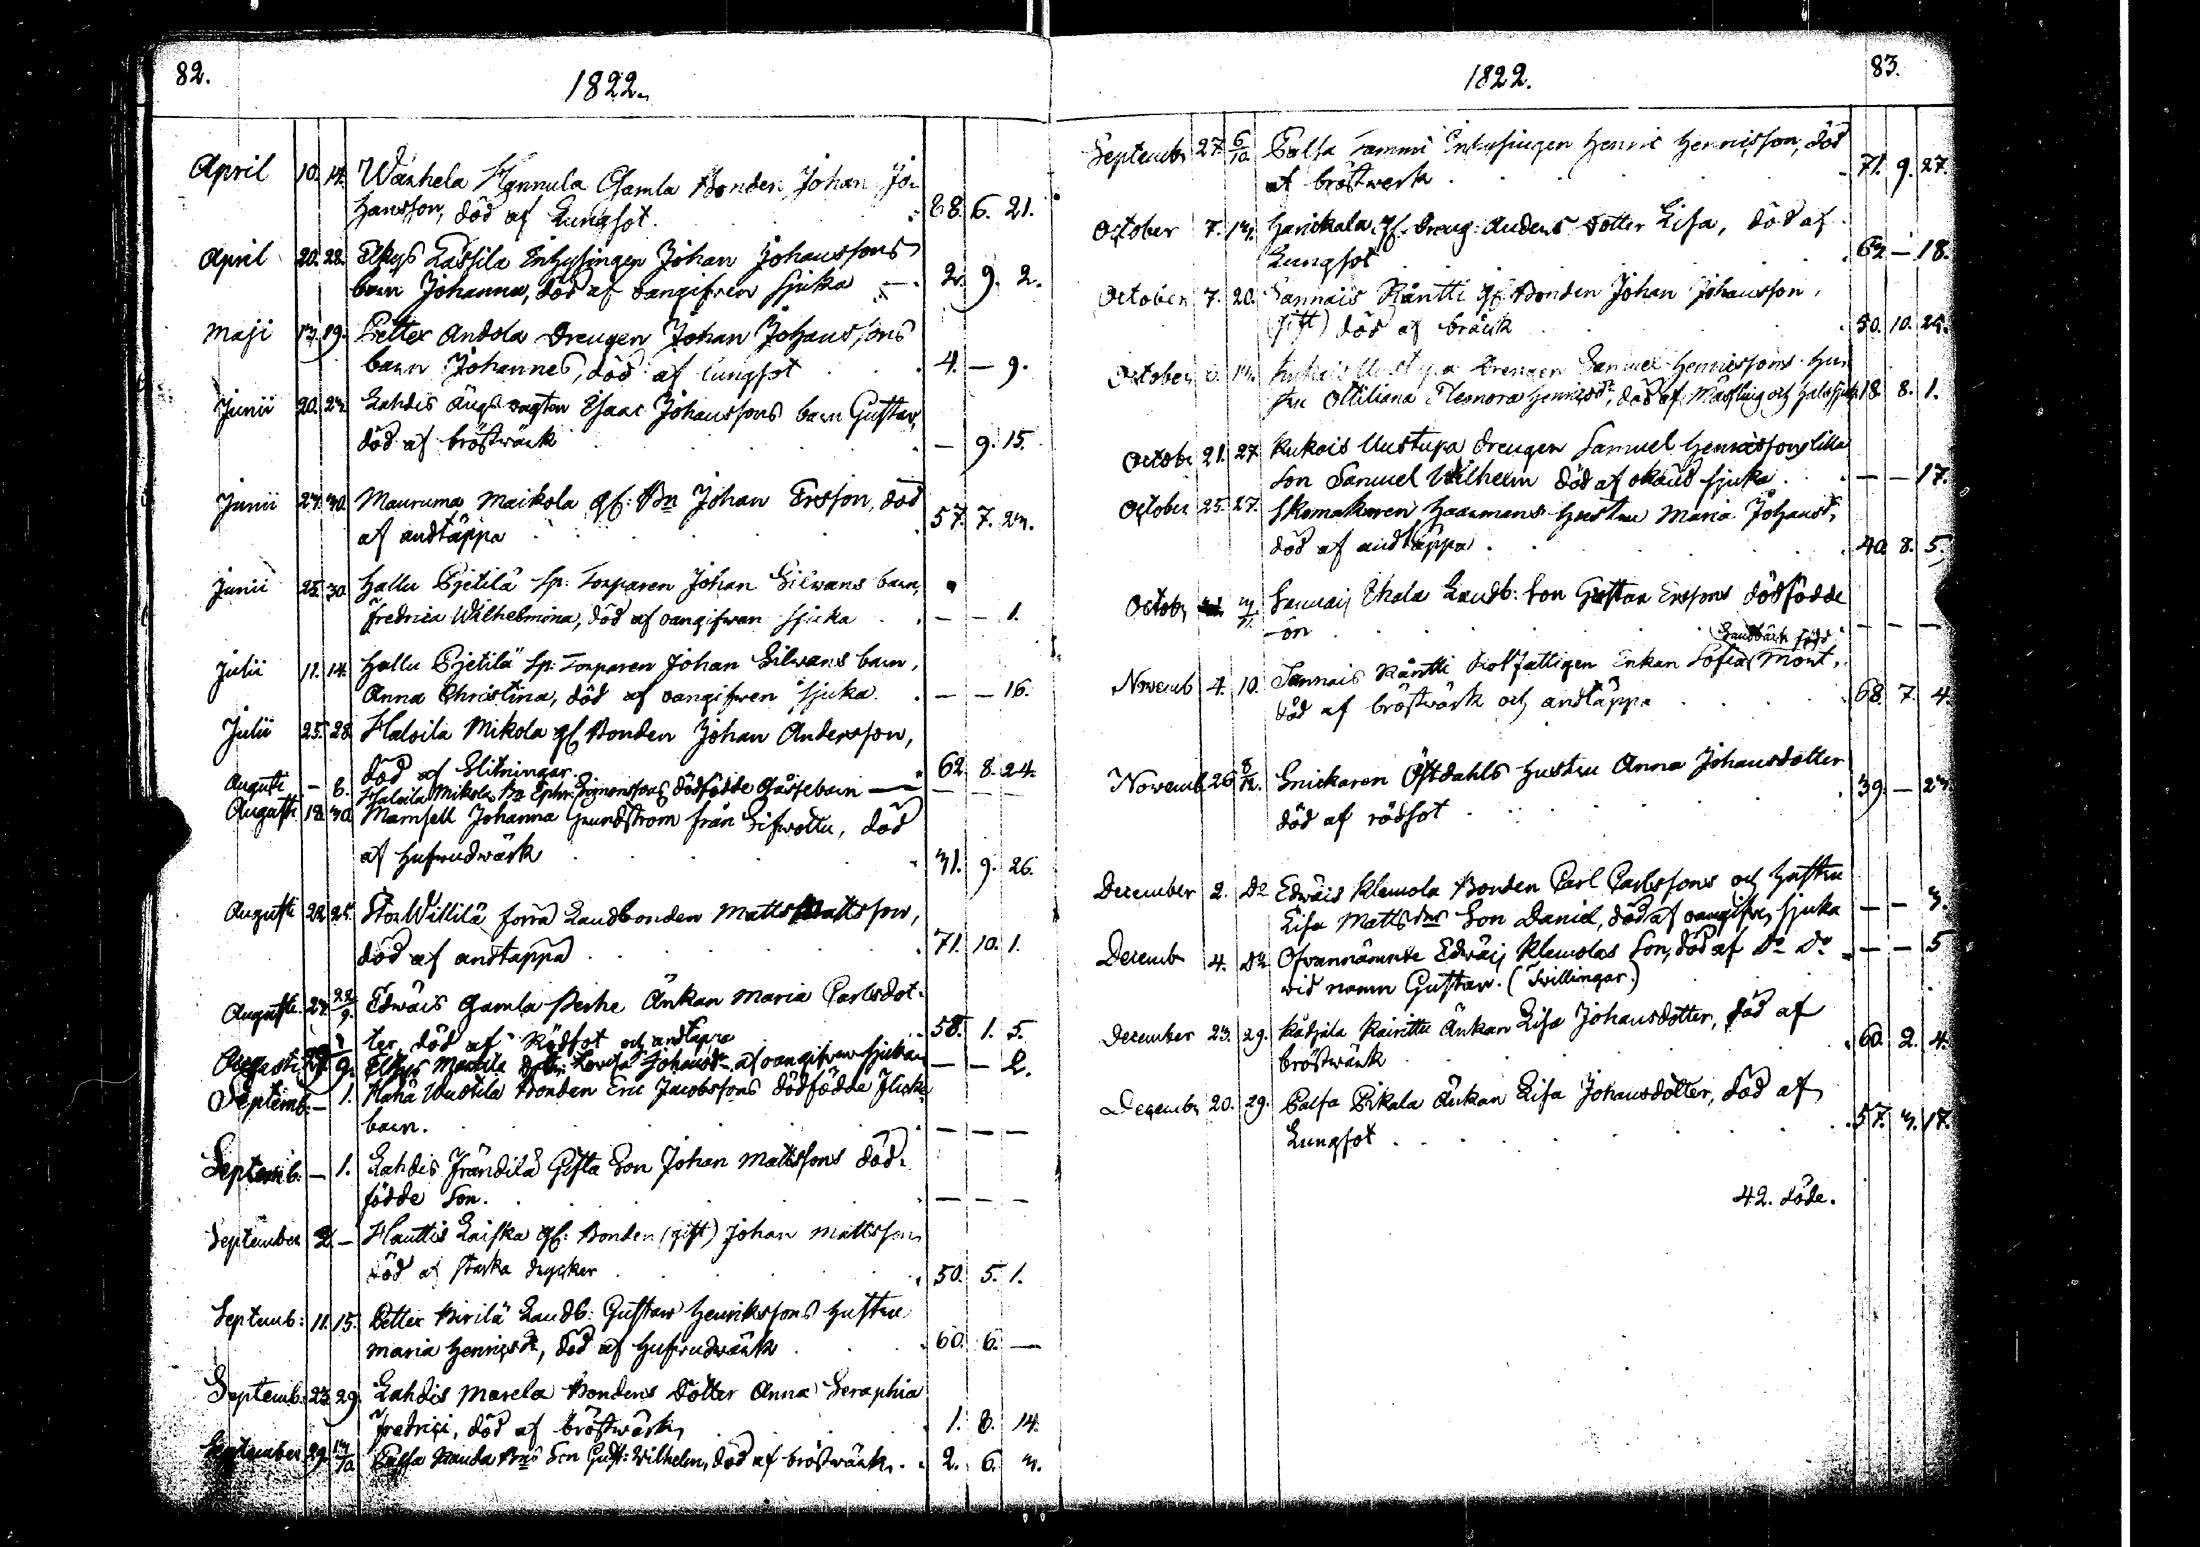 82.
1822.
April 10. 14. Wanhela Hannula Gamla Bonden Johan Jo-
hansson, död af Lungsot. 88. 6. 21.
April 20. 28. Elkys Lassila Inhysingen Johan Johanssons
barn Johanna, död af oangifven sjuka 2. 9. 2.
Maji 13. 19. Petter Andola Drengen Johan Johanssons
barn Johannes, död af lungsot 4. — 9.
Junii 20. 23. Lahdis Ängsvagten Isaac Johanssons barn Gustav,
död af bröstwärk — 9. 15.
Junii 24. 30. Mauruma Maikola gf: Bn Johan Ersson, död
af andtäppa 57. 7. 23.
Junii 25. 30. Hallu Pjetilä Sp: Torparen Johan Silwans barn,
Fredrica Wilhelmina, död af oangifwen sjuka — — 1.
Julii 11. 14. Hallu Pjetilä Sp: Torparen Johan Silwans barn,
Anna Christina, död af oangifwen sjuka — — 16.
Julii 25. 28. Haloila Mikola gf Bonden Johan Andersson,
död af Slitningar. 62. 8. 24.
Augusti — 6. Haloila Mikola Bn Ephr: Simonssons dödfödde Gåssebarn — — —
Augusti 18. 30. Mamsell Johanna Grundstrom från Sifwottu, död
af hufwudwärk 31. 9. 26.
Augusti 22. 25. Stor Willilä förra Landbonden Matts Mattsson,
död af andtäppa 71. 10. 1.
Augusti 24. 22/9. Edwäis Gamla Perhe Änkan Maria Carlsdot-
ter, död af Rödsot och andtäppa 58. 1. 5.
Augusti 9. Elkys Mattila Lovisa Johansdr af oangifwen sjukan — — 2.
Septemb: — 1. Haha Wuotila Bonden Eric Jacobssons dödfödda flicke
barn. — — —
Septemb. — 1. Lahdis Frändilä Gifta Son Johan Mattssons död-
födde Son. — — —
September 2. — Hauttis Laiska gf: Bonden (gift) Johan Mattsson
död af starka drycker 50. 5. 1.
Septemb: 11. 15. Petter Pirilä Landb: Gustaw Henrikssons hustru
Maria Henrigsdr, död af hufwudwärk 60. 6. —
Septemb: 23. 29. Lahdis Marela Bondens Dotter Anna Seraphia
Fredrici, död af bröstwärk, 1. 8. 14.
September 29. 13/10 Palsa Bns Son Gust: Wilhelm, död af bröstwärk. 2. 6. 3.
1822.
83.
Septembr 27. 6/10 Palsa Tammi Inhysingen Henric Henricsson, död
af bröstwerk 71. 9. 27.
October 7. 13. Harickala gf. Dreng: Anders Dotter Lisa, död af
Lungsot 63 — 18.
October 7. 20. Sannais Räntti gf. Bonden Johan Johansson,
(gift) död af bråck 50. 10. 25.
October 13. Drengen Samuel Henricssons Hu-
stru Ottiliana Eleonora Henricsdr, död af Mässling och halssjuka 18. 8. 1.
Octobr 21. 27 Kukois Uustupa Drengen Samuel Henricssons lilla
Son Samuel Wilhelm död af okänd sjuka — — 17.
October 25. 27. Skomakaren Haarmans Hustru Maria Johansd,
död af andtäppa 40. 8. 5.
Octobr 3/11 Sannais Uhala Landb: Son Gustaw Erssons dödfödde
son — — —
Novemb 4. 10. Sannais Räntti Rotfattigen Enkan Sofia Mont,
(Sandbäck född)
död af bröstwärk och andtäppa 68. 7. 4.
Novemb 26 8/12. Snickaren Östdahls hustru Anna Johansdotter
död af rödsot 39. — 23.
December 2. Do Edwäis Klemola Bonden Carl Carlssons och hustru
Lisa Matts dr Son Daniel, död af oangifven sjuka — — 3.
Decemb 4. Do Ofvannämnde Edwäis Klemolas Son, död af Do Do — — 5
wid namn Gustaw. (Twillingar.)
December 23. 29. Kadjala Kairittu Änkan Lisa Johansdotter, död af
bröstwärk 60. 2. 4.
Decembr 20. 29. Palsa Pikala Änkan Lisa Johansdotter, död af
Lungsot 57. 3. 17.
42. döde.